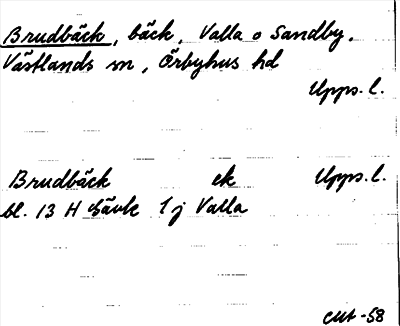 Brudbäck, bäck, Valla o Sandby,
Västlands sn, Örbyhus hd
Upps. l.
Brudbäck ek Upps. l.
bl. 13 H Sävle 1 j Valla
CMt -58